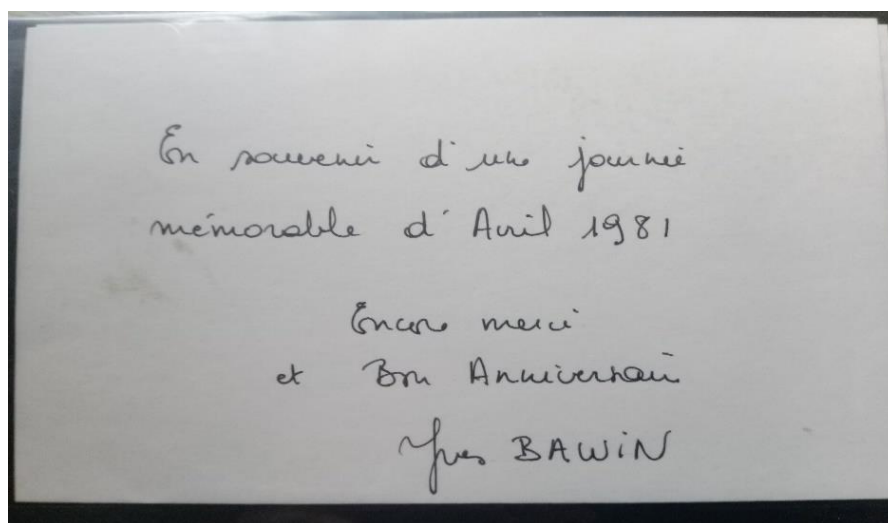 En souvenir d'une journée
mémorable d'Avril 1981
Encore merci
et Bon Anniversaire
Yves BAWIN